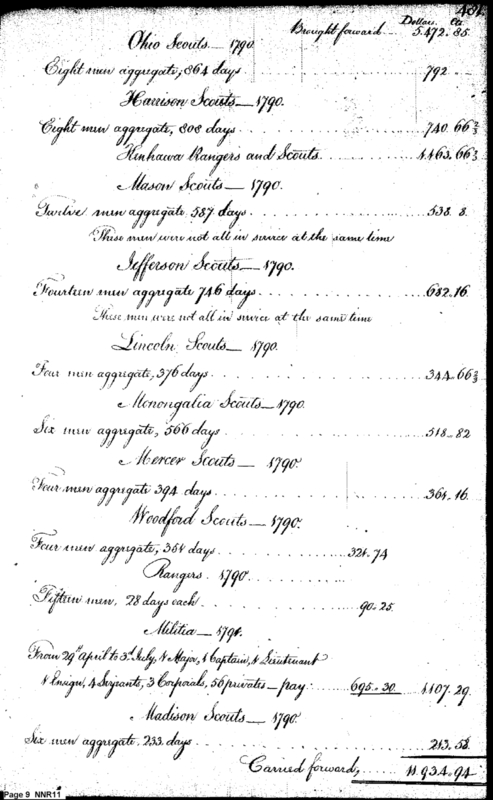 481
Dollars. Cts.
Brought forward 5.472.85
Ohio Scouts — 1790.
Eight men aggregate, 864 days 792
Harrison Scouts — 1790.
Eight men aggregate, 808 days 740.66⅔
Kenhawa Rangers and Scouts 1.163.66⅔
Mason Scouts — 1790.
Twelve men aggregate 587 days 538.8.
These men were not all in service at the same time
Jefferson Scouts — 1790.
Fourteen men aggregate 746 days 682.16
These men were not all in service at the same time
Lincoln Scouts — 1790.
Four men aggregate, 376 days 344.66⅔
Monongalia Scouts — 1790.
Six men aggregate, 566 days 518.82
Mercer Scouts — 1790.
Four men aggregate 394 days 361.16
Woodford Scouts — 1790.
Four men aggregate, 351 days 321.74
Rangers. 1790.
Fifteen men, 28 days each 90.25.
Militia — 1791.
From 29th April to 3d July, 1 Major, 1 Captain, 1 Lieutenant
1 Ensign, 4 Serjeants, 3 Corporals, 56 privates — pay. 695.30 1107.29.
Madison Scouts — 1790.
Six men aggregate. 233 days 213.58.
Carried forward, 11.934.94
Page 9 NNR11